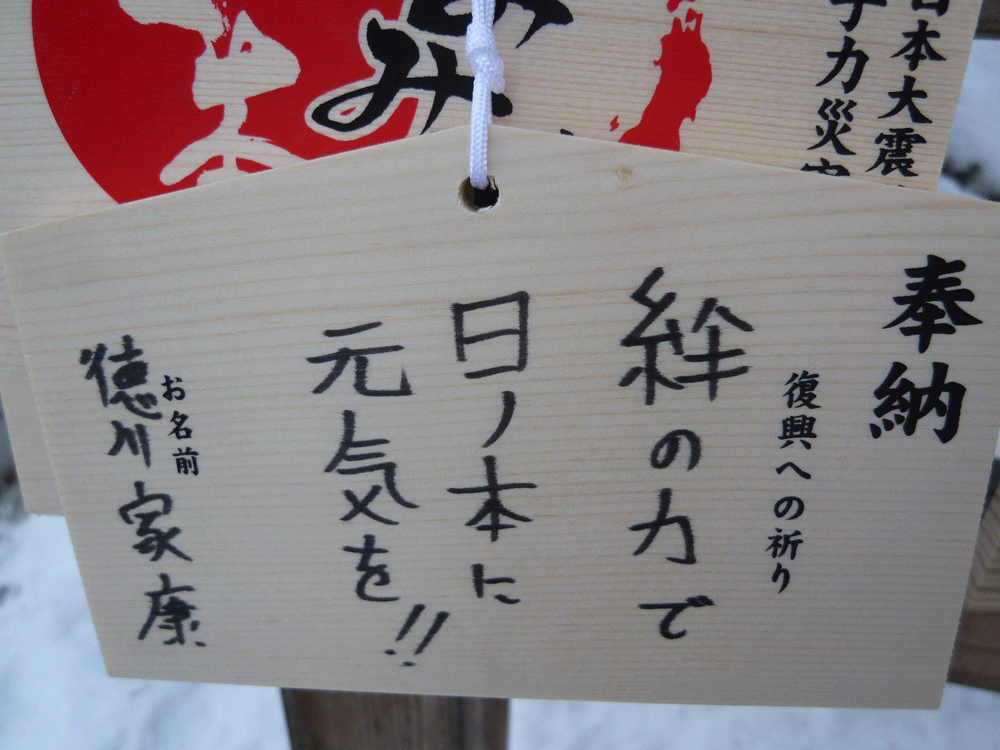 奉納
復興への祈り
絆の力で
日ノ本に
元気を!!
お名前
徳川家康
日本大震
子力災
み